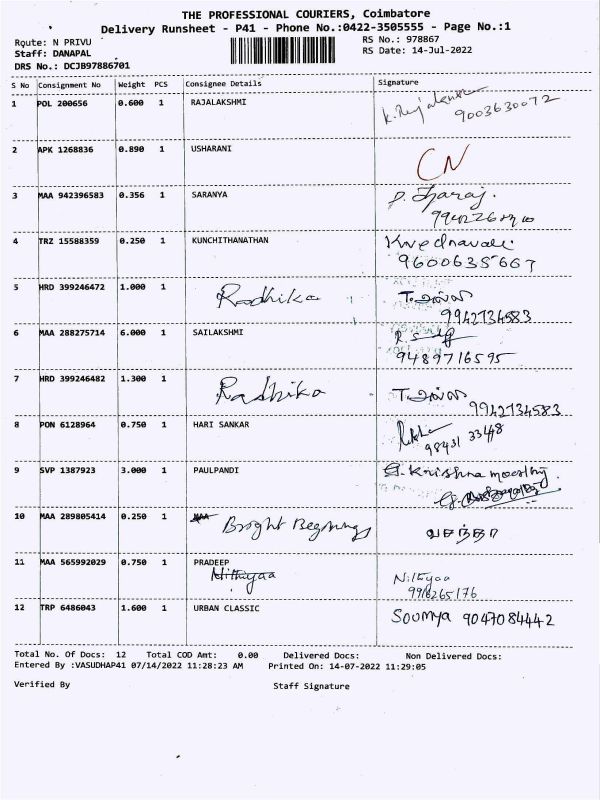 THE PROFESSIONAL COURIERS, Coimbatore
Delivery Runsheet - P41 - Phone No.:0422-3505555 - Page No.:1
Route: N PRIVU RS No.: 978867
Staff: DANAPAL RS Date: 14-Jul-2022
DRS No.: DCJB97886701
S No Consignment No Weight PCS Consignee Details Signature
1 POL 200656 0.600 1 RAJALAKSHMI
9003630072
2 APK 1268836 0.890 1 USHARANI CN
3 MAA 942396583 0.356 1 SARANYA
4 TRZ 15588359 0.250 1 KUNCHITHANATHAN
9600635667
5 HRD 399246472 1.000 1 Radhika
9942134583
6 MAA 288275714 6.000 1 SAILAKSHMI
9489716595
7 HRD 399246482 1.300 1 Radhika
9942134583
8 PON 6128964 0.750 1 HARI SANKAR
98431 33448
9 SVP 1387923 3.000 1 PAULPANDI G. Krishna moorthy
10 MAA 289805414 0.250 1 Bright வசந்தா
11 MAA 565992029 0.750 1 PRADEEP Nithyaa
Nithiyaa
12 TRP 6486043 1.600 1 URBAN CLASSIC Soumya 9047084442
Total No. Of Docs: 12 Total COD Amt: 0.00 Delivered Docs: Non Delivered Docs:
Entered By :VASUDHAP41 07/14/2022 11:28:23 AM Printed On: 14-07-2022 11:29:05
Verified By Staff Signature